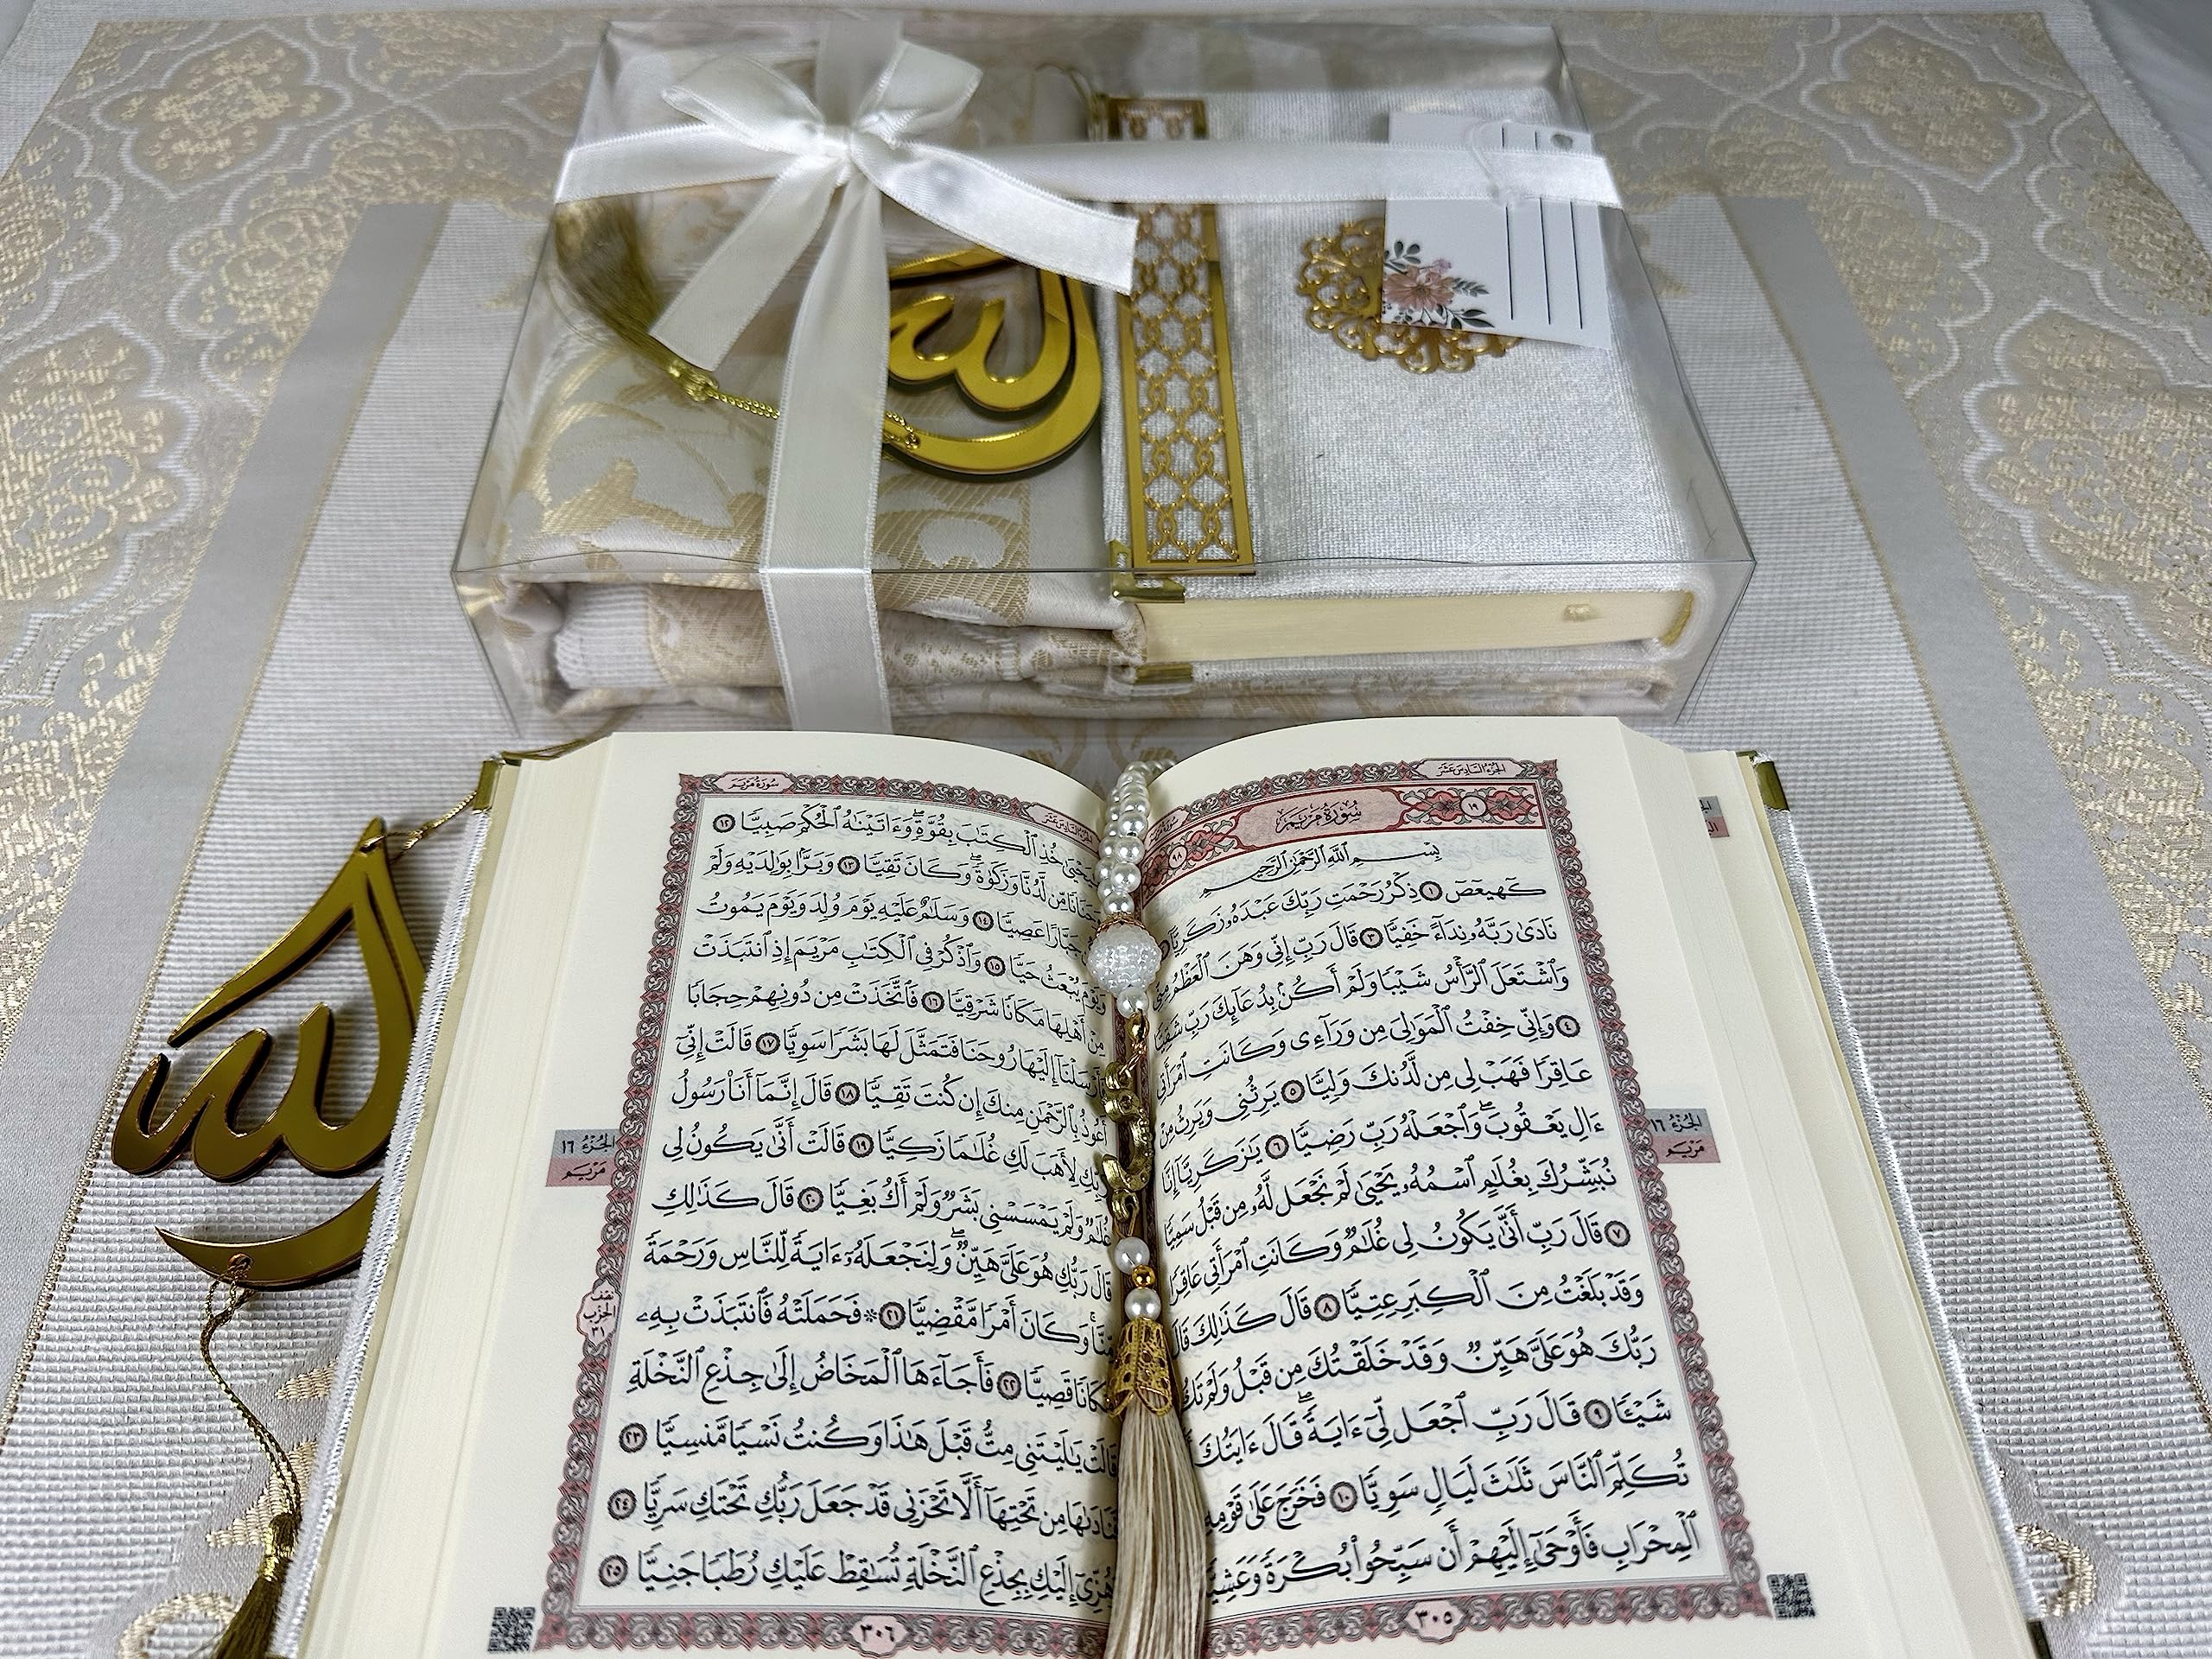 الله
الله
الجُزْءُ السَّادِسَ عَشَرَ
١٩ سُورَةُ مَرْيَمَ ٩٨
بِسْمِ اللَّهِ الرَّحْمَٰنِ الرَّحِيمِ
كٓهيعٓصٓ ١ ذِكْرُ رَحْمَتِ رَبِّكَ عَبْدَهُۥ زَكَرِيَّآ
نَادَىٰ رَبَّهُۥ نِدَآءً خَفِيًّا ٣ قَالَ رَبِّ إِنِّى وَهَنَ ٱلْعَظْمُ مِنِّى
وَٱشْتَعَلَ ٱلرَّأْسُ شَيْبًا وَلَمْ أَكُنۢ بِدُعَآئِكَ رَبِّ شَقِيًّا
٤ وَإِنِّى خِفْتُ ٱلْمَوَٰلِىَ مِن وَرَآءِى وَكَانَتِ ٱمْرَأَتِى
عَاقِرًا فَهَبْ لِى مِن لَّدُنكَ وَلِيًّا ٥ يَرِثُنِى وَيَرِثُ مِنْ
ءَالِ يَعْقُوبَ ۖ وَٱجْعَلْهُ رَبِّ رَضِيًّا ٦ يَٰزَكَرِيَّآ إِنَّا
نُبَشِّرُكَ بِغُلَٰمٍ ٱسْمُهُۥ يَحْيَىٰ لَمْ نَجْعَل لَّهُۥ مِن قَبْلُ سَمِيًّا
٧ قَالَ رَبِّ أَنَّىٰ يَكُونُ لِى غُلَٰمٌ وَكَانَتِ ٱمْرَأَتِى عَاقِرًا
وَقَدْ بَلَغْتُ مِنَ ٱلْكِبَرِ عِتِيًّا ٨ قَالَ كَذَٰلِكَ قَالَ
رَبُّكَ هُوَ عَلَىَّ هَيِّنٌ وَقَدْ خَلَقْتُكَ مِن قَبْلُ وَلَمْ تَكُ
شَيْـًٔا ٩ قَالَ رَبِّ ٱجْعَل لِّىٓ ءَايَةً ۚ قَالَ ءَايَتُكَ
تُكَلِّمَ ٱلنَّاسَ ثَلَٰثَ لَيَالٍ سَوِيًّا ١٠ فَخَرَجَ عَلَىٰ قَوْمِهِۦ
ٱلْمِحْرَابِ فَأَوْحَىٰٓ إِلَيْهِمْ أَن سَبِّحُوا۟ بُكْرَةً وَعَشِيًّا
٣٠٥
الجُزْءُ ١٦
مَرْيَم
سُورَةُ مَرْيَمَ
الجُزْءُ السَّادِسَ عَشَرَ
يَٰيَحْيَىٰ خُذِ ٱلْكِتَٰبَ بِقُوَّةٍ ۖ وَءَاتَيْنَٰهُ ٱلْحُكْمَ صَبِيًّا ١٢
وَحَنَانًا مِّن لَّدُنَّا وَزَكَوٰةً ۖ وَكَانَ تَقِيًّا ١٣ وَبَرًّۢا بِوَٰلِدَيْهِ وَلَمْ
جَبَّارًا عَصِيًّا ١٤ وَسَلَٰمٌ عَلَيْهِ يَوْمَ وُلِدَ وَيَوْمَ يَمُوتُ
وَيَوْمَ يُبْعَثُ حَيًّا ١٥ وَٱذْكُرْ فِى ٱلْكِتَٰبِ مَرْيَمَ إِذِ ٱنتَبَذَتْ
مِنْ أَهْلِهَا مَكَانًا شَرْقِيًّا ١٦ فَٱتَّخَذَتْ مِن دُونِهِمْ حِجَابًا
فَأَرْسَلْنَآ إِلَيْهَا رُوحَنَا فَتَمَثَّلَ لَهَا بَشَرًا سَوِيًّا ١٧ قَالَتْ إِنِّىٓ
أَعُوذُ بِٱلرَّحْمَٰنِ مِنكَ إِن كُنتَ تَقِيًّا ١٨ قَالَ إِنَّمَآ أَنَا۠ رَسُولُ
رَبِّكِ لِأَهَبَ لَكِ غُلَٰمًا زَكِيًّا ١٩ قَالَتْ أَنَّىٰ يَكُونُ لِى
غُلَٰمٌ وَلَمْ يَمْسَسْنِى بَشَرٌ وَلَمْ أَكُ بَغِيًّا ٢٠ قَالَ كَذَٰلِكِ
قَالَ رَبُّكِ هُوَ عَلَىَّ هَيِّنٌ ۖ وَلِنَجْعَلَهُۥٓ ءَايَةً لِّلنَّاسِ وَرَحْمَةً
مِّنَّا ۚ وَكَانَ أَمْرًا مَّقْضِيًّا ٢١ ۞ فَحَمَلَتْهُ فَٱنتَبَذَتْ بِهِۦ
مَكَانًا قَصِيًّا ٢٢ فَأَجَآءَهَا ٱلْمَخَاضُ إِلَىٰ جِذْعِ ٱلنَّخْلَةِ
قَالَتْ يَٰلَيْتَنِى مِتُّ قَبْلَ هَٰذَا وَكُنتُ نَسْيًا مَّنسِيًّا ٢٣
فَنَادَىٰهَا مِن تَحْتِهَآ أَلَّا تَحْزَنِى قَدْ جَعَلَ رَبُّكِ تَحْتَكِ سَرِيًّا ٢٤
وَهُزِّىٓ إِلَيْكِ بِجِذْعِ ٱلنَّخْلَةِ تُسَٰقِطْ عَلَيْكِ رُطَبًا جَنِيًّا ٢٥
٣٠٦
الجُزْءُ ١٦
مَرْيَم
نصف
الحزب
٣١